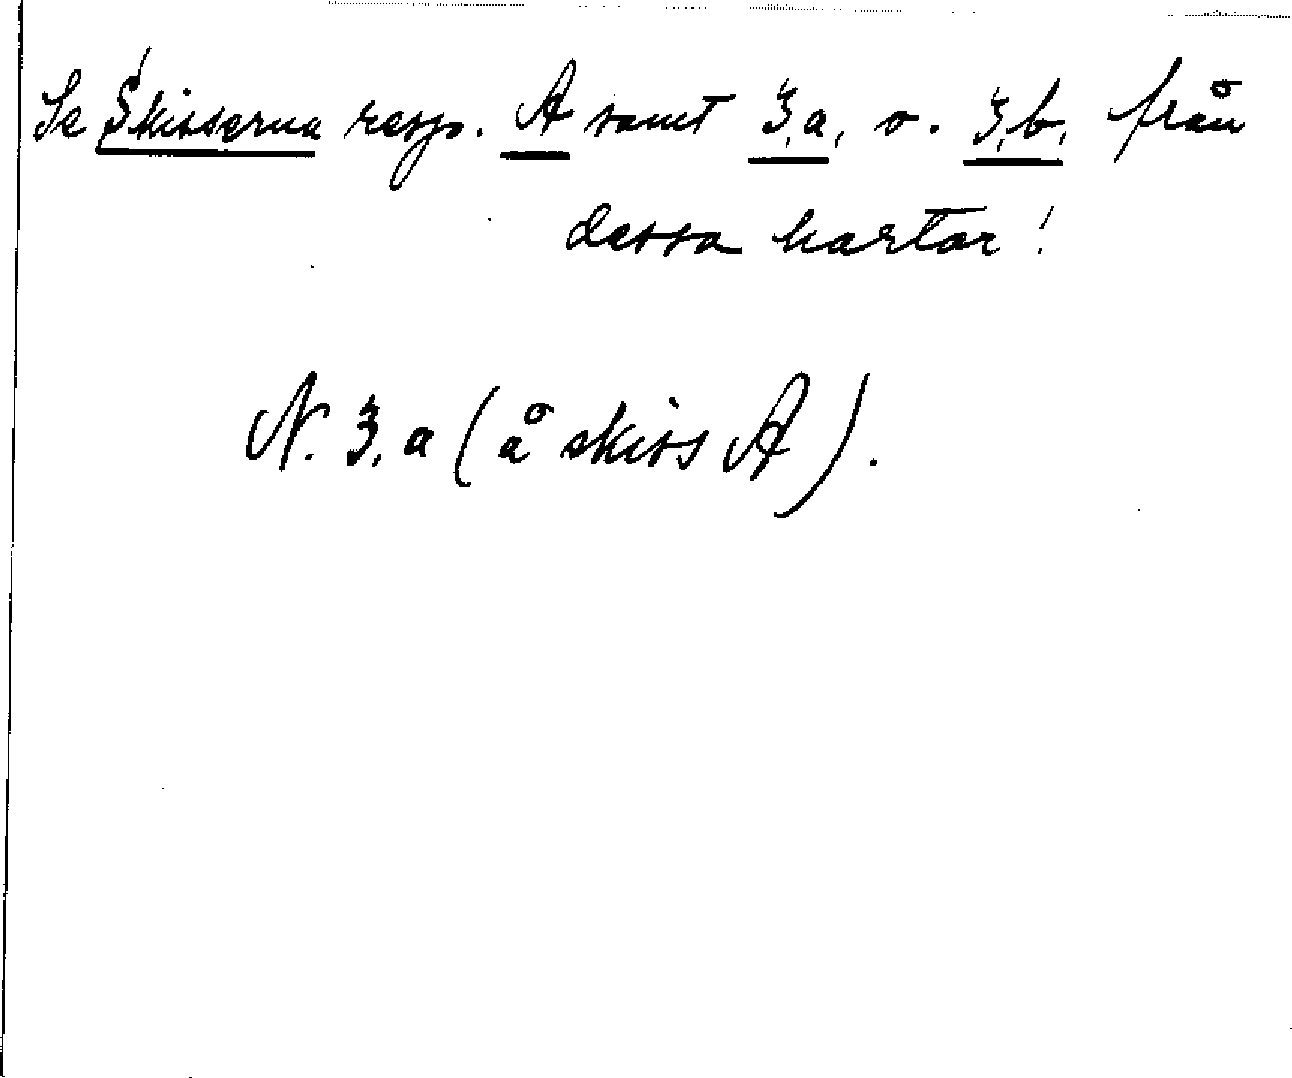 Se Skisserna resp. A samt 3,a, o. 3,b, från
dessa kartor!
N. 3,a (å skiss A).